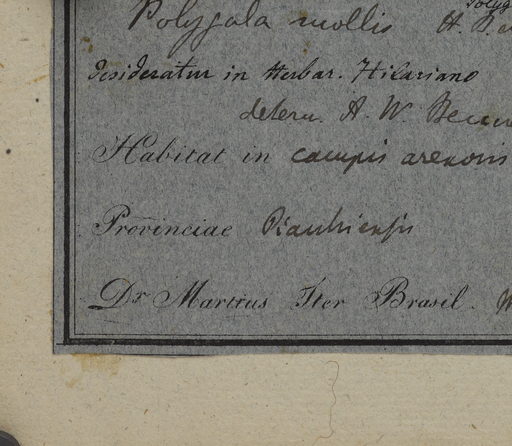 Polyg
Polygala mollis H. B.
desideratur in Herbar. Hilariano
determ. A. W. Benn
Habitat in campis arenosis
Provinciae Piauhiensis
Dr. Martius Iter Brasil.